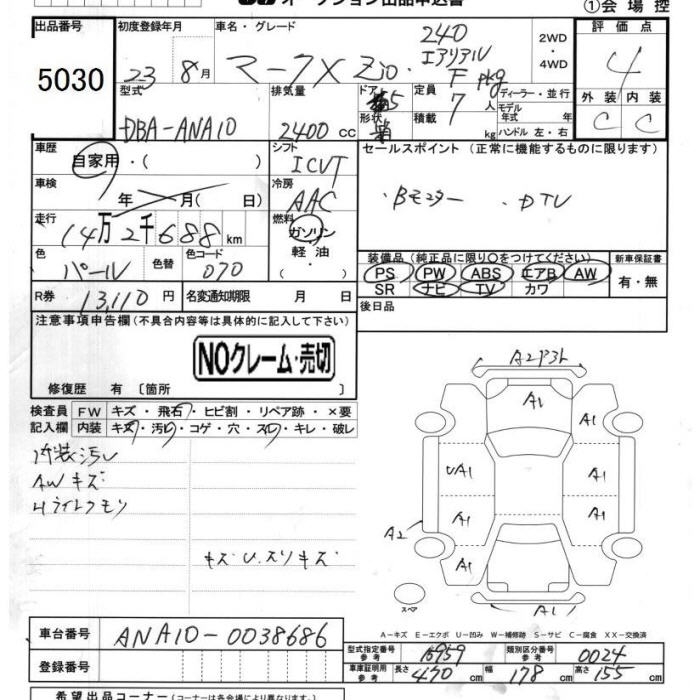 ①会場控
出品番号
5030
初度登録年月
23 8月
車名・グレード
マークX Zio
240
エアリアル
F pkg
2WD
・
4WD
評価点
4
外装 内装
C C
型式
DBA-ANA10
排気量
2400 cc
ドア 5
形状
定員 7人
積載 kg
ディーラー・並行
モデル年式 年
ハンドル 左・右
車歴
自家用・( )
シフト
ICVT
車検
年 月( 日)
冷房
AAC
走行
14万2千688 km
燃料
ガソリン
軽油
・( )
色
パール
色替
色コード
070
R券 13,110円
名変通知期限 月 日
セールスポイント (正常に機能するものに限ります)
・Bモニター ・DTV
装備品 (純正品に限り○をつけてください)
PS PW ABS エアB AW
SR ナビ TV カワ
新車保証書
有・無
後日品
注意事項申告欄(不具合内容等は具体的に記入して下さい)
NOクレーム・売切
修復歴 有 〔箇所 〕
検査員記入欄
FW キズ・飛石・ヒビ割・リペア跡・×要
内装 キズ・汚れ・コゲ・穴・スレ・キレ・破レ
内装汚レ
AWキズ
Hライトクモリ
キズU.スリキズ
A1
A1
UA1
A1
A1
A1
A2
A1
A1
スペア
A-キズ E-エクボ U-凹み W-補修跡 S-サビ C-腐食 XX-交換済
車台番号
ANA10-0038686
登録番号
型式指定番号 参考 16959
類別区分番号 参考 0024
車庫証明用 参考 長さ 470 幅 178 高さ 155 cm
希望出品コーナー